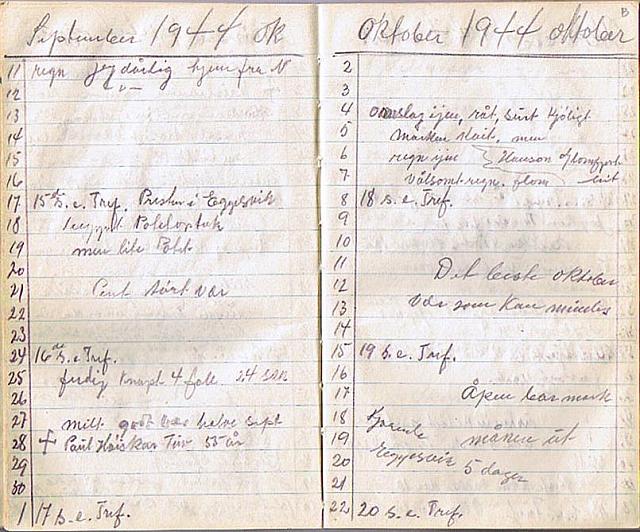 September 1944 ok
11 regn jeg dårlig hjem fra N
12 - " -
13
14
15
16
17 15de s. e. Tref. Presten i Eggesvik
18 Potetoptak
19 men lite Potet
20
21 Pent tørt vær
22
23
24 16de s. e. Tref.
25 ferdig 4 24 sek
26
27 mildt godt vær halve Sept
28 † Paul 55 år
29
30
1 17 s. e. Tref.
Oktober 1944 oktober
B
2
3
4 omslag igjen, råt, surt kjøligt
5 marken men
6 regn igjen Hanson
7 Voldsomt regn. flom
8 18 s. e. Tref.
9
10
11 Det beste oktober
12
13 vær som kan mindes
14
15 19 s. e. Tref.
16
17 Åpen bar mark
18
19 måneden ut
20 Eggesvik 5 dager
21
22 20 s. e. Tref.